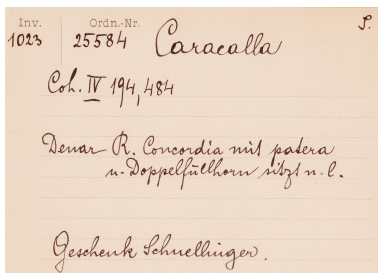 Inv. Ordn.-Nr. S.
1023 25584 Caracalla
Coh. IV 194,484
Denar R. Concordia mit patera
u. Doppelfüllhorn sitzt n. l.
Geschenk Schnellinger.